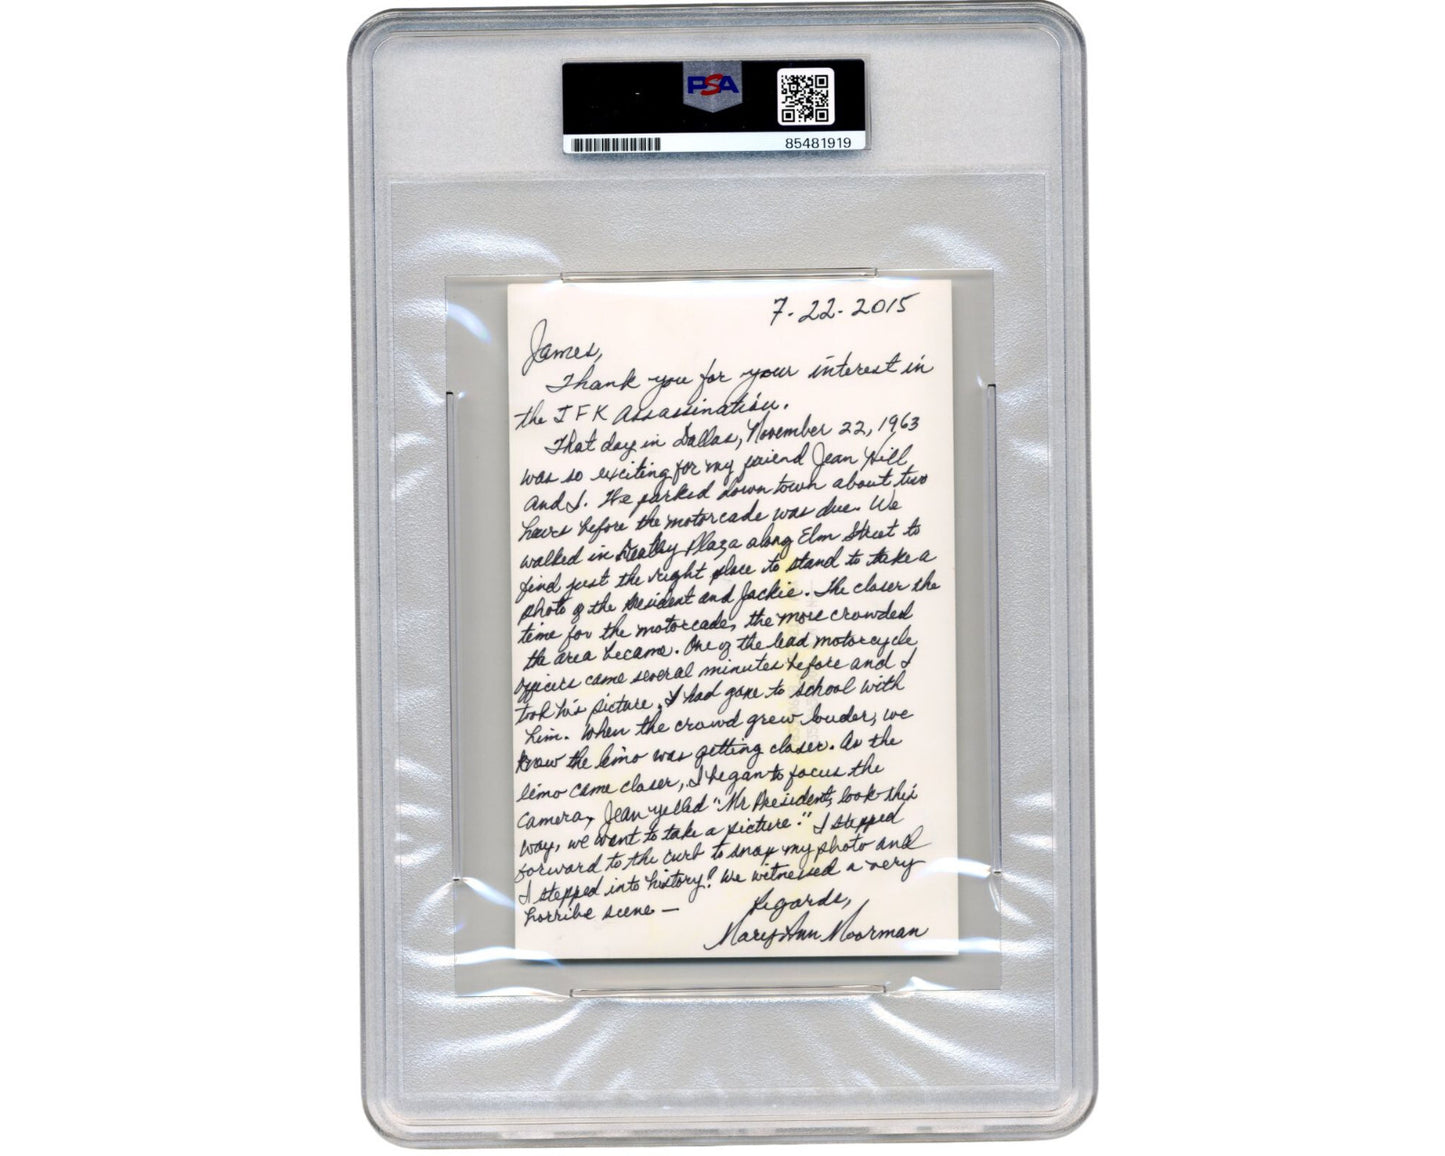 PSA
85481919
7-22-2015
James,
Thank you for your interest in
the JFK Assassination.
That day in Dallas, November 22, 1963
was so exciting for my friend Jean Hill
and I. We parked down town about two
hours before the motorcade was due. We
walked in Dealey Plaza along Elm Street to
find just the right place to stand to take a
photo of the President and Jackie. The closer the
time for the motorcade, the more crowded
the area became. One of the lead motorcycle
officers came several minutes before and I
took his picture, I had gone to school with
him. When the crowd grew louder, we
know the limo was getting closer. As the
limo came closer, I began to focus the
camera, Jean yelled "Mr President, look this
way, we want to take a picture." I stepped
forward to the curb to snap my photo and
I stepped into history! We witnessed a very
horrible scene —
Regards,
Mary Ann Moorman